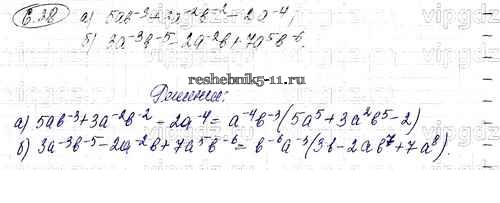 6.38 а) 5ab⁻³+3a⁻²b⁻²−2a⁻⁴;
б) 3a⁻³b⁻⁵−2a⁻²b+7a⁵b⁻⁶.
reshebnik5-11.ru
Решение:
а) 5ab⁻³+3a⁻²b⁻²−2a⁻⁴=a⁻⁴b⁻³(5a⁵+3a²b⁵−2)
б) 3a⁻³b⁻⁵−2a⁻²b+7a⁵b⁻⁶=b⁻⁶a⁻³(3b−2ab⁷+7a⁸).